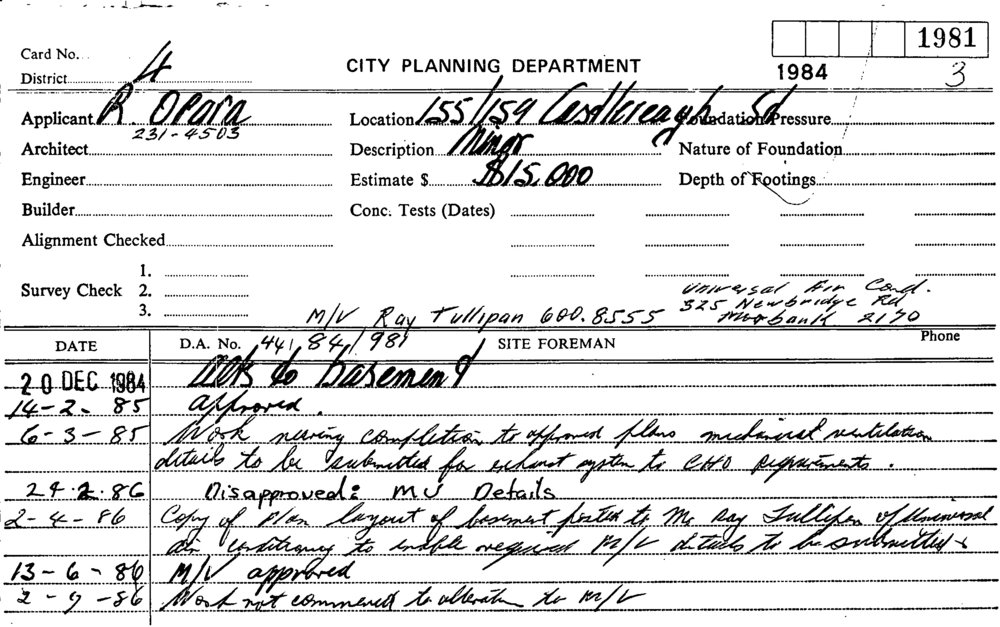 1981
Card No.
District 4
CITY PLANNING DEPARTMENT
1984
3
Applicant R. Opara
231-4503
Location 155/159 Castlereagh Sd
Foundation Pressure
Architect
Description Minor
Nature of Foundation
Engineer
Estimate $ $15,000
Depth of Footings
Builder
Conc. Tests (Dates)
Alignment Checked
1.
Survey Check 2.
3.
Universal Air Cond.
325 Newbridge Rd
2170
M/V Ray Tullipan 600.8555
DATE D.A. No. 44/84/981 SITE FOREMAN Phone
20 DEC 1984 to basement
14-2-85 approved.
6-3-85 Work nearing completion to approved plans mechanical ventilation
details to be submitted for exhaust system to CHO requirements.
24.2.86 Disapproved: MV Details
2-4-86 Copy of Plan layout of basement posted to Mr Ray Tullipan of Universal
air conditioning to enable required M/V details to be submitted
13-6-86 M/V approved
2-9-86 Work not commenced to alteration to M/V